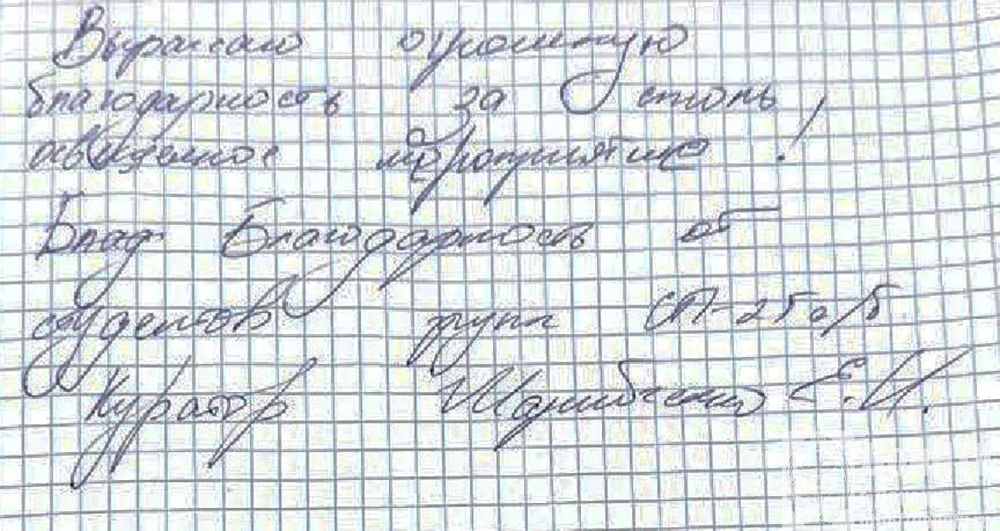 Выражаю огромную
благодарность за столь
активное мероприятие!
Благодарность от
студентов групп СП-25а/б
Куратор Е.И.